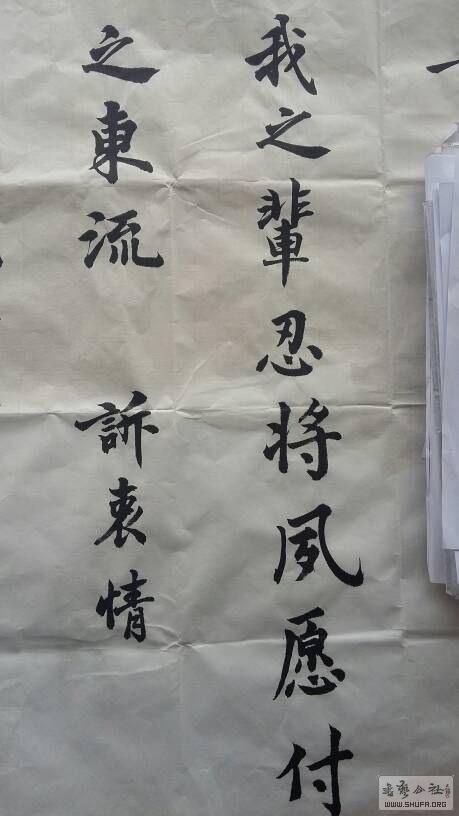 我之輩忍将夙愿付
之東流 訴衷情
WWW.SHUFA.ORG